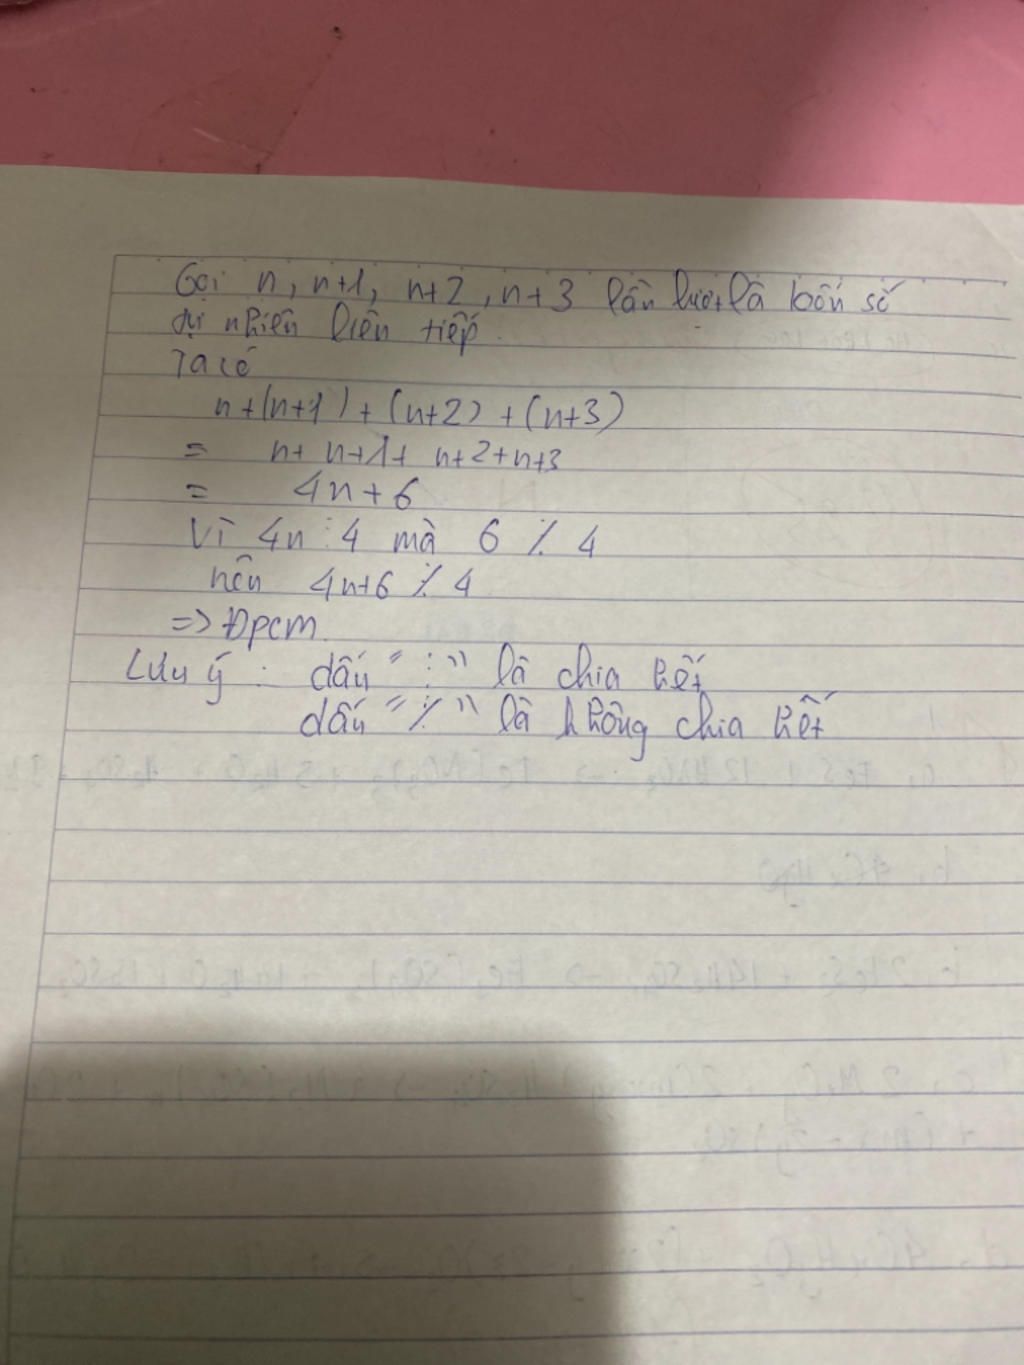 Gọi n, n+1, n+2, n+3 lần lượt là bốn số
tự nhiên liên tiếp.
Ta có
n+(n+1)+(n+2)+(n+3)
= n+ n+1+ n+2+n+3
= 4n+6
Vì 4n ⋮ 4 mà 6 ⋮̸ 4
nên 4n+6 ⋮̸ 4
=> Đpcm.
Lưu ý : dấu "⋮" là chia hết
dấu "⋮̸" là không chia hết